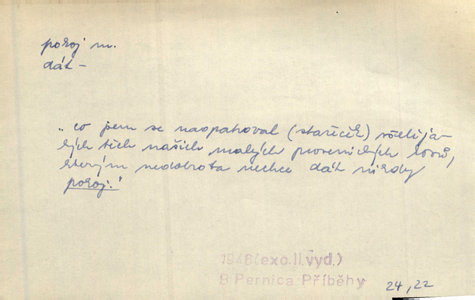 pokoj m.
dát –
„co jsem se naopatroval (staříček) všelija-
kých těch našich malých prosenických tvorů,
kterým nedobrota nechce dát nikdy
pokoj."
1946(exc.II.vyd.)
B Pernica Příběhy
24,22